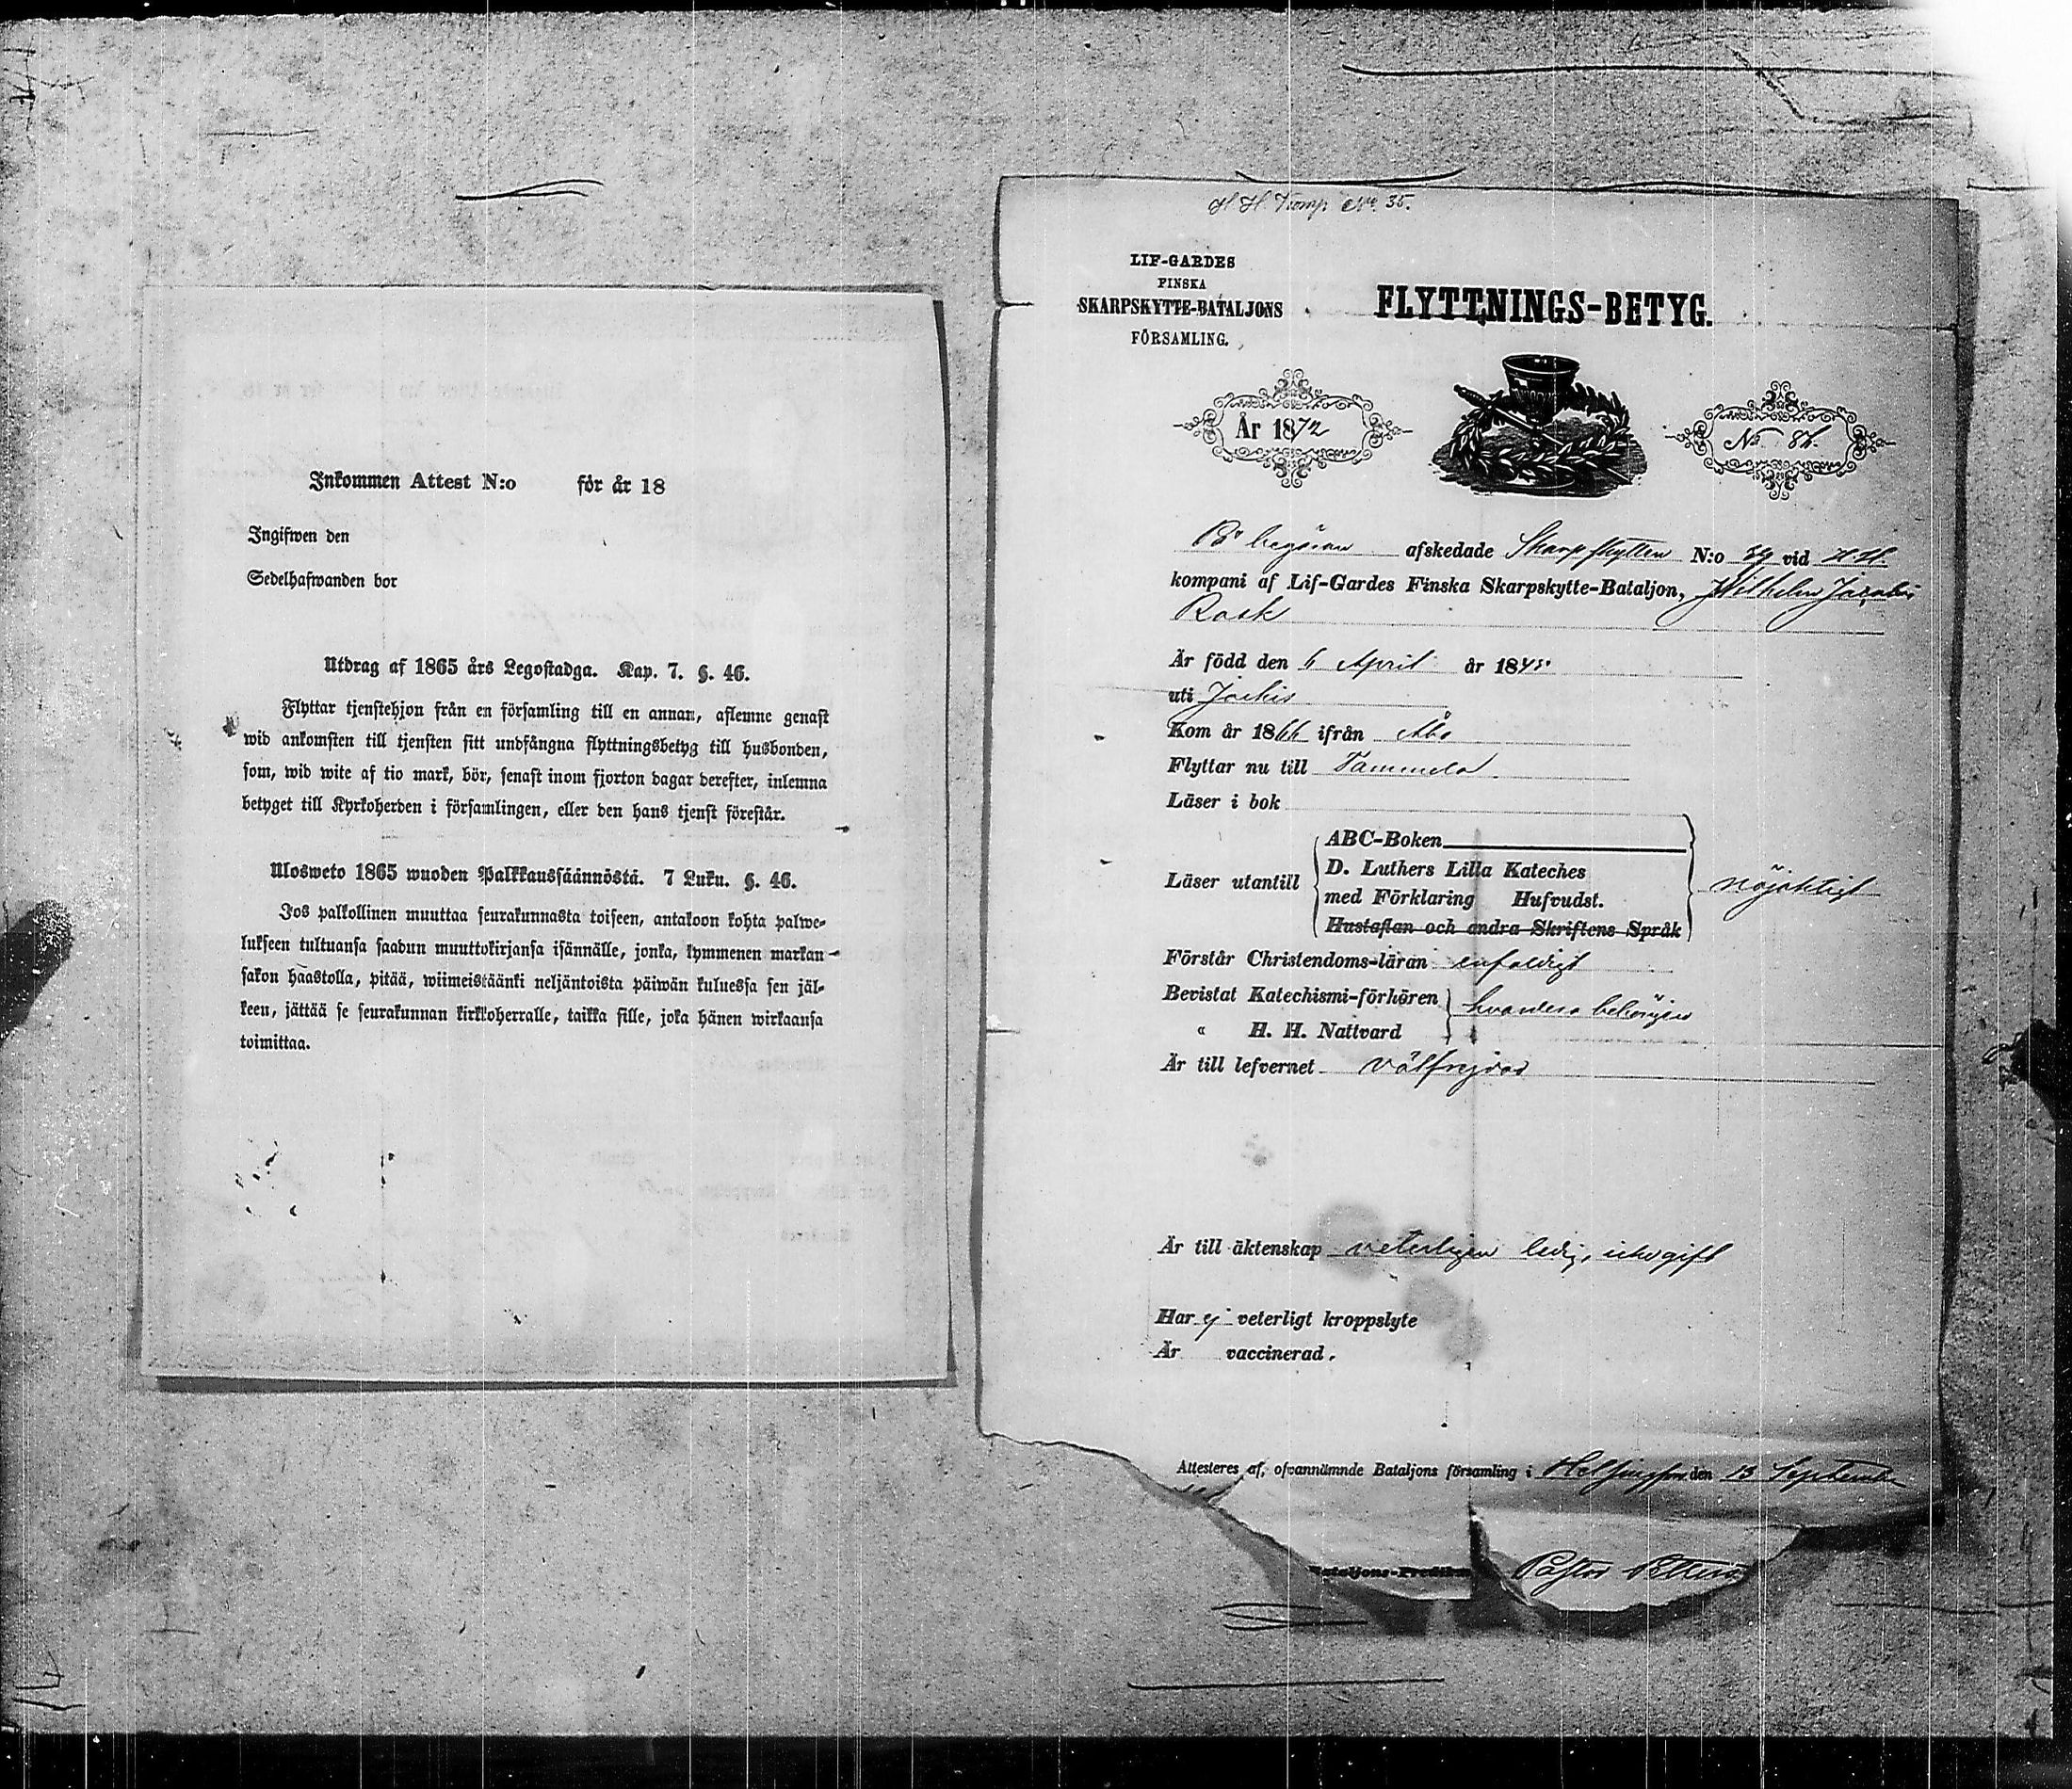 Inkommen Attest N:o för år 18
Ingifwen den
Sedelhafwanden bor
Utdrag af 1865 års Legostadga. Kap. 7. §. 46.
Flyttar tjenstehjon från en församling till en annan, aflemne genast
wid ankomsten till tjensten sitt undfångna flyttningsbetyg till husbonden,
som, wid wite af tio mark, bör, senast inom fjorton dagar derefter, inlemna
betyget till Kyrkoherden i församlingen, eller den hans tjenst förestår.
Ulosweto 1865 wuoden Palkkaussäännöstä. 7 Luku. §. 46.
Jos palkollinen muuttaa seurakunnasta toiseen, antakoon kohta palwe-
lukseen tultuansa saadun muuttokirjansa isännälle, jonka, kymmenen markan
sakon haastolla, pitää, wiimeistäänki neljäntoista päiwän kuluessa sen jäl-
keen, jättää se seurakunnan kirkkoherralle, taikka sille, joka hänen wirkaansa
toimittaa.
H. H. Komp. No. 35.
LIF-GARDES
FINSKA
SKARPSKYTTE-BATALJONS
FÖRSAMLING.
FLYTTNINGS-BETYG.
År 1872
No 86.
På begäran afskedade Skarpskytten N:o 39 vid H. H.
kompani af Lif-Gardes Finska Skarpskytte-Bataljon, Wilhelm Jacobsson
Rask
Är född den 6 April år 184
uti Jockis
Kom år 1866 ifrån Åbo
Flyttar nu till Tammela
Läser i bok
Läser utantill
ABC-Boken
D. Luthers Lilla Kateches
med Förklaring Hufvudst.
Hustaflan och andra Skriftens Språk
nöjaktigt
Förstår Christendoms-läran enfaldigt
Bevistat Katechismi-förhören
" H. H. Nattvard
hvardera behörigen
Är till lefvernet välfrejdad
Är till äktenskap veterligen ledig, icke gift
Har ej veterligt kroppslyte
Är vaccinerad.
Attesteres af, ofvannämnde Bataljons församling i Helsingfors den 13 September
Bataljons-Predikant
Pastor